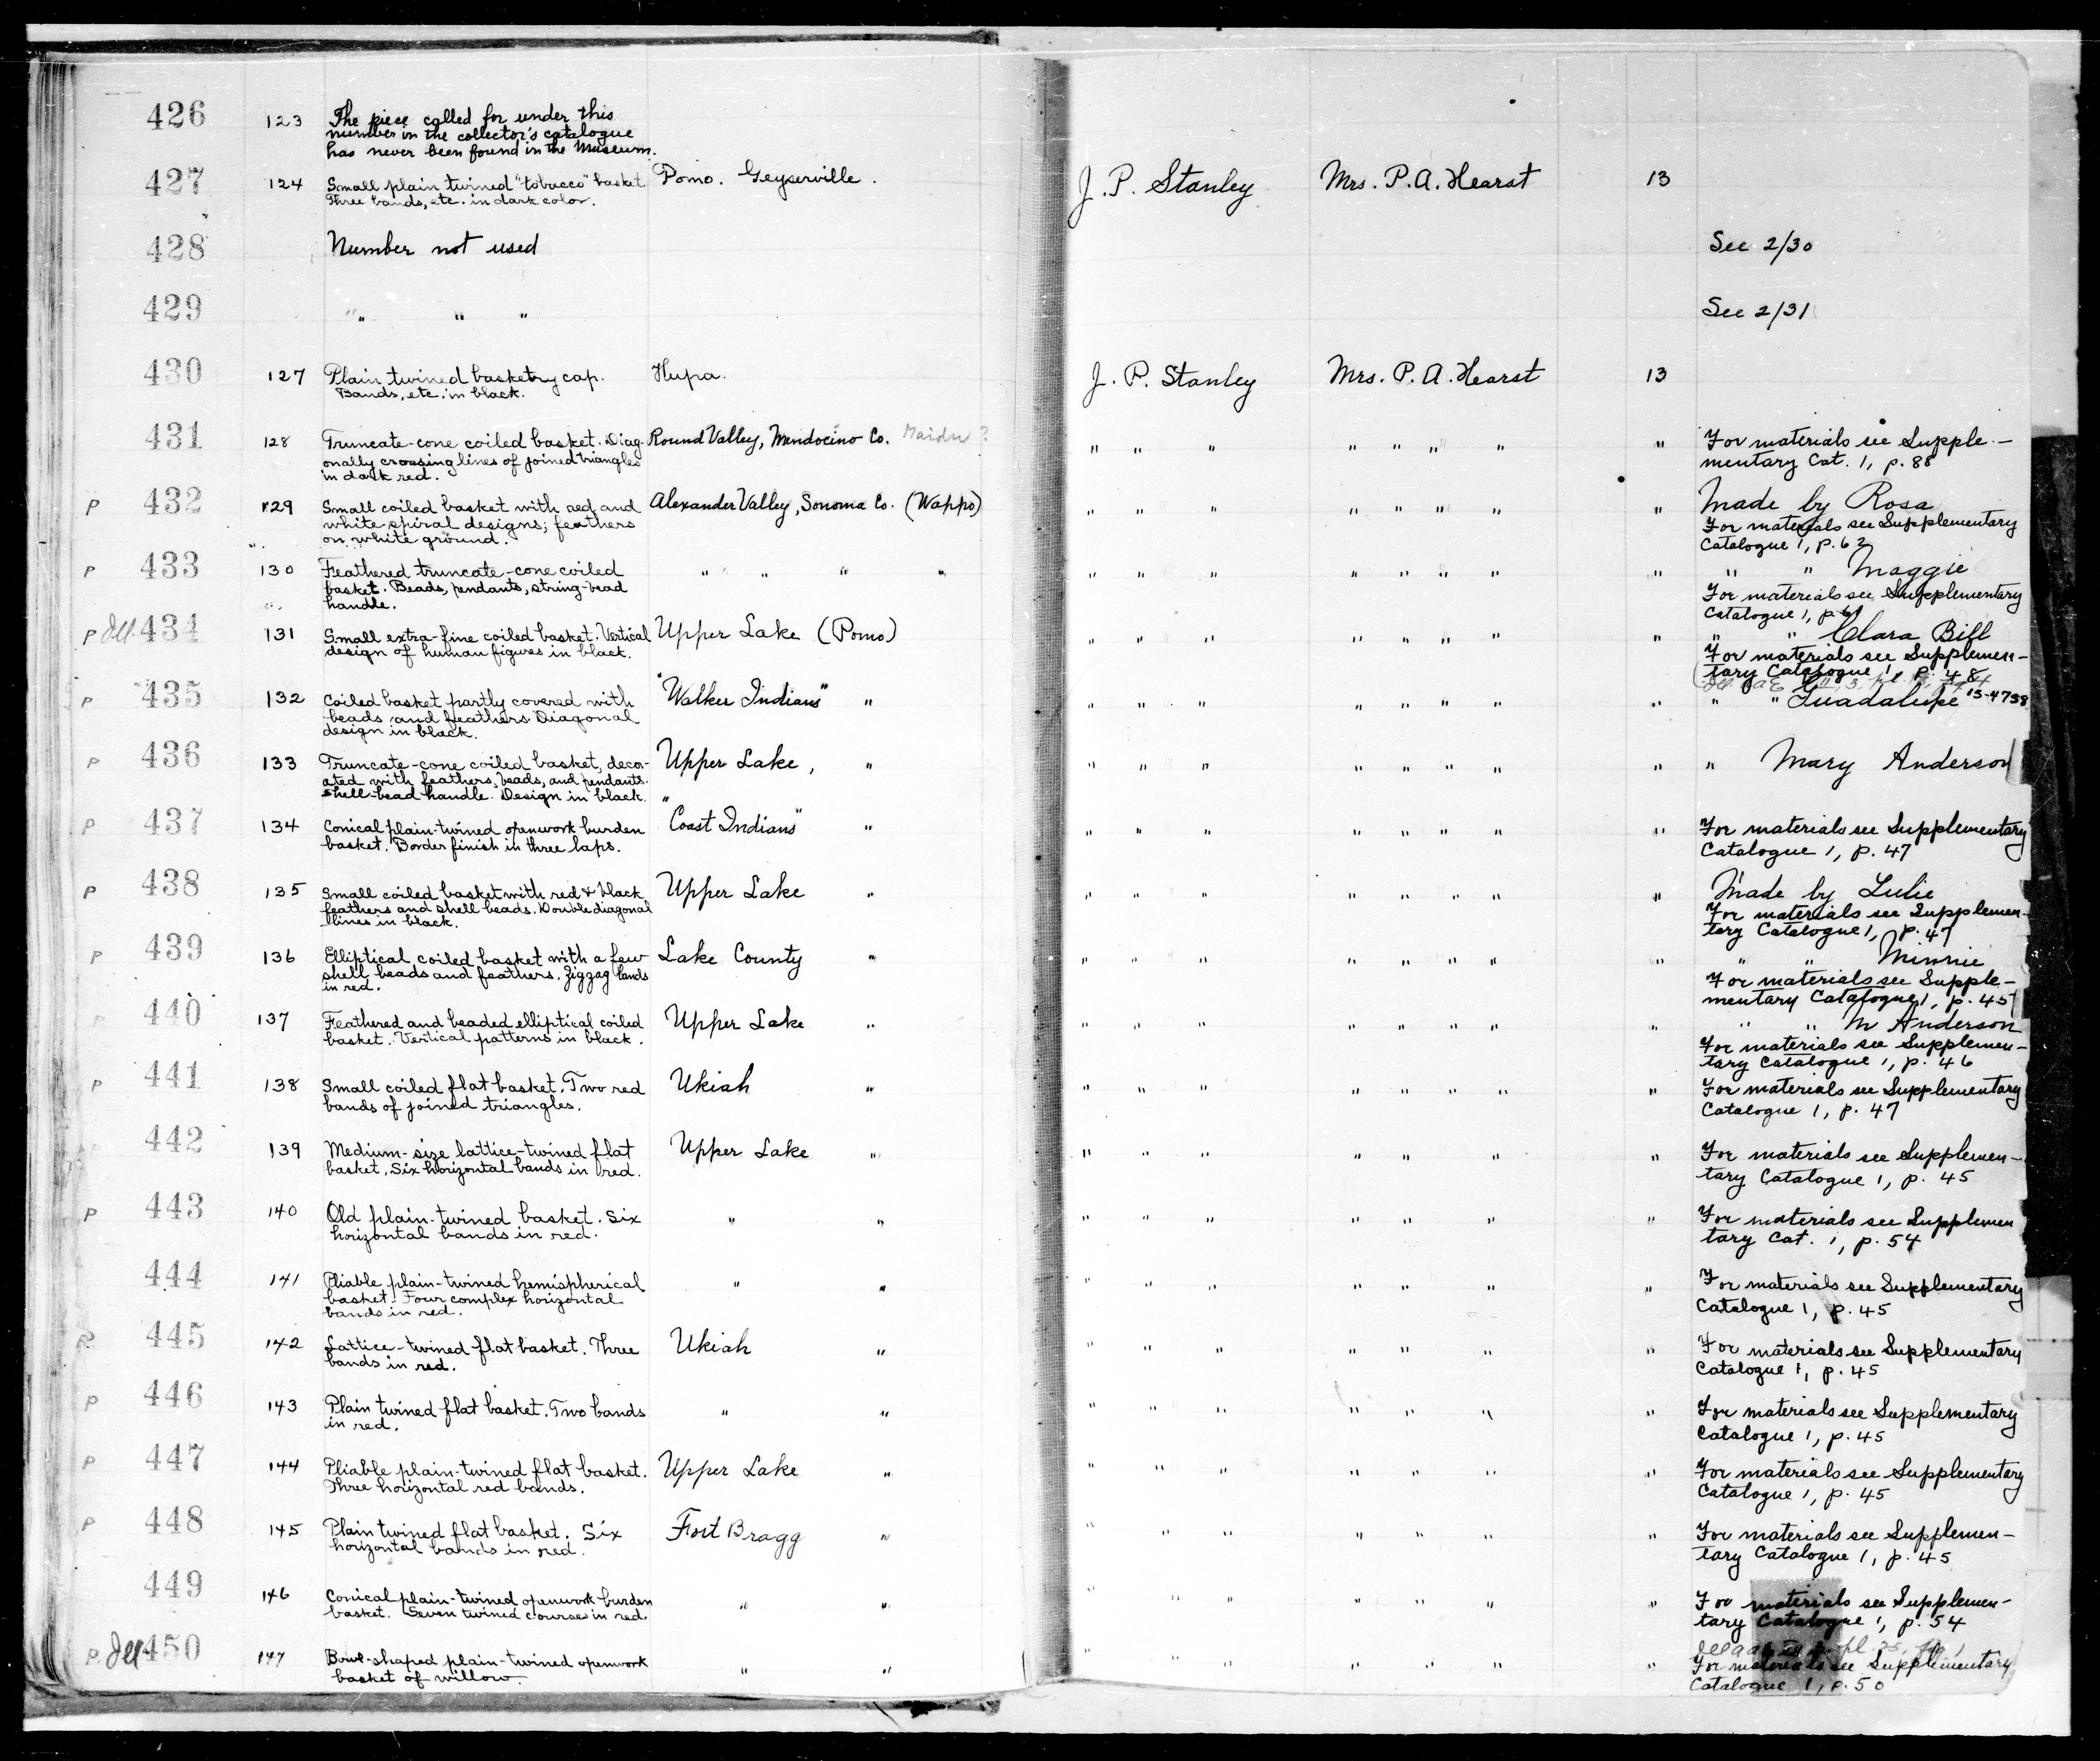 426 123 The piece called for under this
number in the collector's catalogue
has never been found in the Museum.
427 124 Small plain twined "tobacco" basket Pomo. Geyserville. J. P. Stanley Mrs. P. A. Hearst 13
Three bands, etc. in dark color.
428 Number not used See 2/30
429 " " " See 2/31
430 127 Plain twined basketry cap. Hupa. J. P. Stanley Mrs. P. A. Hearst 13
Bands, etc. in black.
431 128 Truncate-cone coiled basket. Diag- Round Valley, Mendocino Co. Maidu ? " " " " " " " " For materials see Supple-
onally crossing lines of joined triangles mentary Cat. 1, p. 88
in dark red.
P 432 129 Small coiled basket with red and Alexander Valley, Sonoma Co. (Wappo) " " " " " " " " Made by Rosa
white spiral designs; feathers For materials see Supplementary
on white ground. Catalogue 1, p. 62
P 433 130 Feathered truncate-cone coiled " " " " " " " " " " " " " " Maggie
basket. Beads, pendants, string-bead For materials see Supplementary
handle. Catalogue 1, p. 61
P Ill. 434 131 Small extra-fine coiled basket. Vertical Upper Lake (Pomo) " " " " " " " " " " Clara Bill
design of human figures in black. For materials see Supplemen-
tary Catalogue 1, p. 48
P 435 132 Coiled basket partly covered with "Walker Indians" " " " " " " " " " " " Guadalupe 15-4738
beads and feathers. Diagonal
design in black.
P 436 133 Truncate-cone coiled basket, decor- Upper Lake, " " " " " " " " " " Mary Anderson
ated with feathers, beads, and pendants.
Shell-bead handle. Design in black.
P 437 134 Conical plain-twined openwork burden "Coast Indians" " " " " " " " " " For materials see Supplementary
basket. Border finish in three laps. Catalogue 1, p. 47
P 438 135 Small coiled basket with red & black Upper Lake " " " " " " " " " Made by Lulie
feathers and shell beads. Double diagonal For materials see Supplemen-
lines in black. tary Catalogue 1, p. 47
P 439 136 Elliptical coiled basket with a few Lake County " " " " " " " " " " " Minnie
shell beads and feathers. Zigzag bands For materials see Supple-
in red. mentary Catalogue 1, p. 45
P 440 137 Feathered and beaded elliptical coiled Upper Lake " " " " " " " " " " " M Anderson
basket. Vertical patterns in black. For materials see Supplemen-
tary Catalogue 1, p. 46
P 441 138 Small coiled flat basket. Two red Ukiah " " " " " " " " " For materials see Supplementary
bands of joined triangles. Catalogue 1, p. 47
442 139 Medium-size lattice-twined flat Upper Lake " " " " " " " " For materials see Supplemen-
basket. Six horizontal bands in red. tary Catalogue 1, p. 45
P 443 140 Old plain-twined basket. Six " " " " " " " " " For materials see Supplemen
horizontal bands in red. tary Cat. 1, p. 54
444 141 Pliable plain-twined hemispherical " " " " " " " " " For materials see Supplementary
basket. Four complex horizontal Catalogue 1, p. 45
bands in red.
P 445 142 Lattice-twined flat basket. Three Ukiah " " " " " " " " For materials see Supplementary
bands in red. Catalogue 1, p. 45
P 446 143 Plain twined flat basket. Two bands " " " " " " " " " For materials see Supplementary
in red. Catalogue 1, p. 45
P 447 144 Pliable plain-twined flat basket. Upper Lake " " " " " " " " For materials see Supplementary
Three horizontal red bands. Catalogue 1, p. 45
P 448 145 Plain twined flat basket. Six Fort Bragg " " " " " " " " For materials see Supplemen-
horizontal bands in red. tary Catalogue 1, p. 45
449 146 Conical plain-twined openwork burden " " " " " " " " " For materials see Supplemen-
basket. Seven twined courses in red. tary Catalogue 1, p. 54
P. Ill 450 147 Bowl-shaped plain-twined openwork " " " " " " " " " For materials see Supplementary
basket of willow. Catalogue 1, p. 50